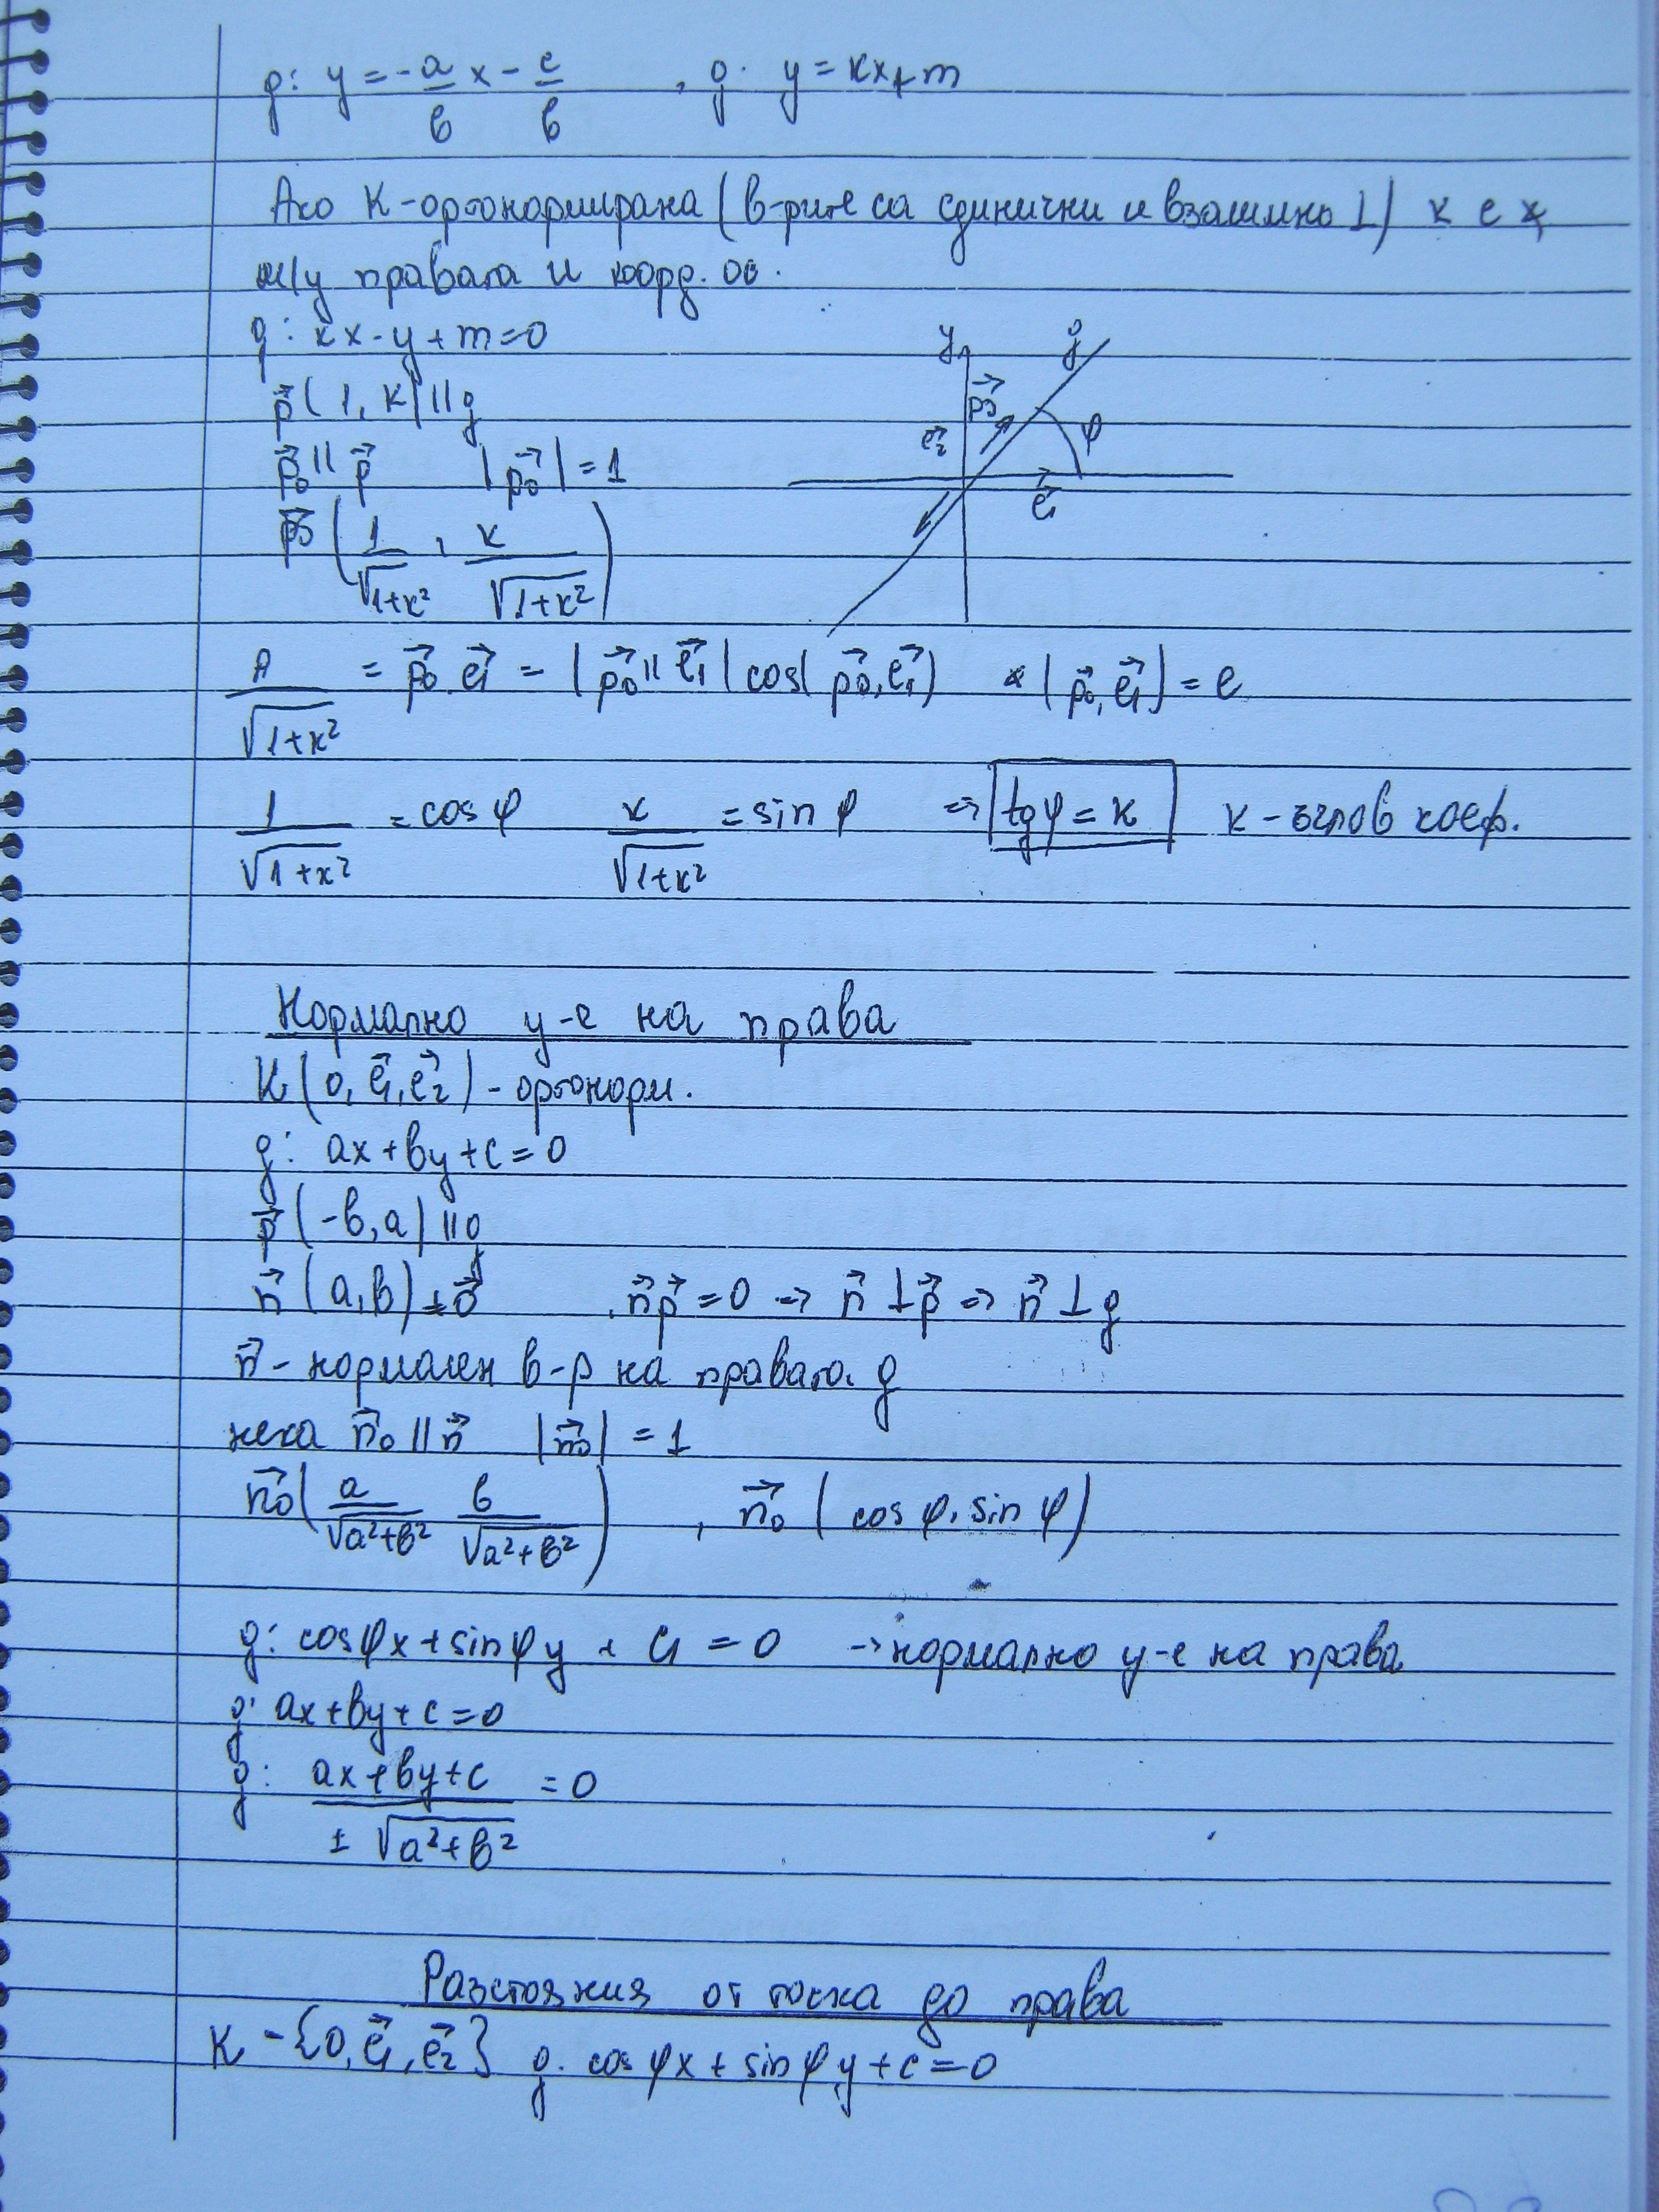 g: y = -a/b x - c/b , g: y = kx+m
Ако K-ортонормирана (в-рите са единични и взаимно ⊥) k е ∢
м/у правата и коорд. ос.
g: kx-y+m=0
p⃗(1, k) || g
p₀⃗ || p⃗ |p₀⃗| = 1
p₀⃗ (1/√(1+k²), k/√(1+k²))
y g
p₀⃗
e₂⃗ φ
e₁⃗
1/√(1+k²) = p₀⃗.e₁⃗ = |p₀⃗||e₁⃗| cos(p₀⃗,e₁⃗) ∢(p₀⃗,e₁⃗) = φ
1/√(1+k²) = cos φ k/√(1+k²) = sin φ => tgφ = k k - ъглов коеф.
Нормално у-е на права
K(0, e₁⃗, e₂⃗) - ортонорм.
g: ax+by+c=0
p⃗(-b, a) || g
n⃗(a, b) ≠ 0⃗ , n⃗p⃗ = 0 => n⃗ ⊥ p⃗ => n⃗ ⊥ g
n⃗ - нормален в-р на правата g
нека n₀⃗ || n⃗ |n₀⃗| = 1
n₀⃗(a/√(a²+b²) b/√(a²+b²)) , n₀⃗ (cos φ, sin φ)
g: cosφx+sinφy + c₁ = 0 → нормално у-е на права
g: ax+by+c=0
g: (ax+by+c)/(±√(a²+b²)) = 0
Разстояния от точка до права
K - {0, e₁⃗, e₂⃗} g: cos φx + sinφy + c = 0